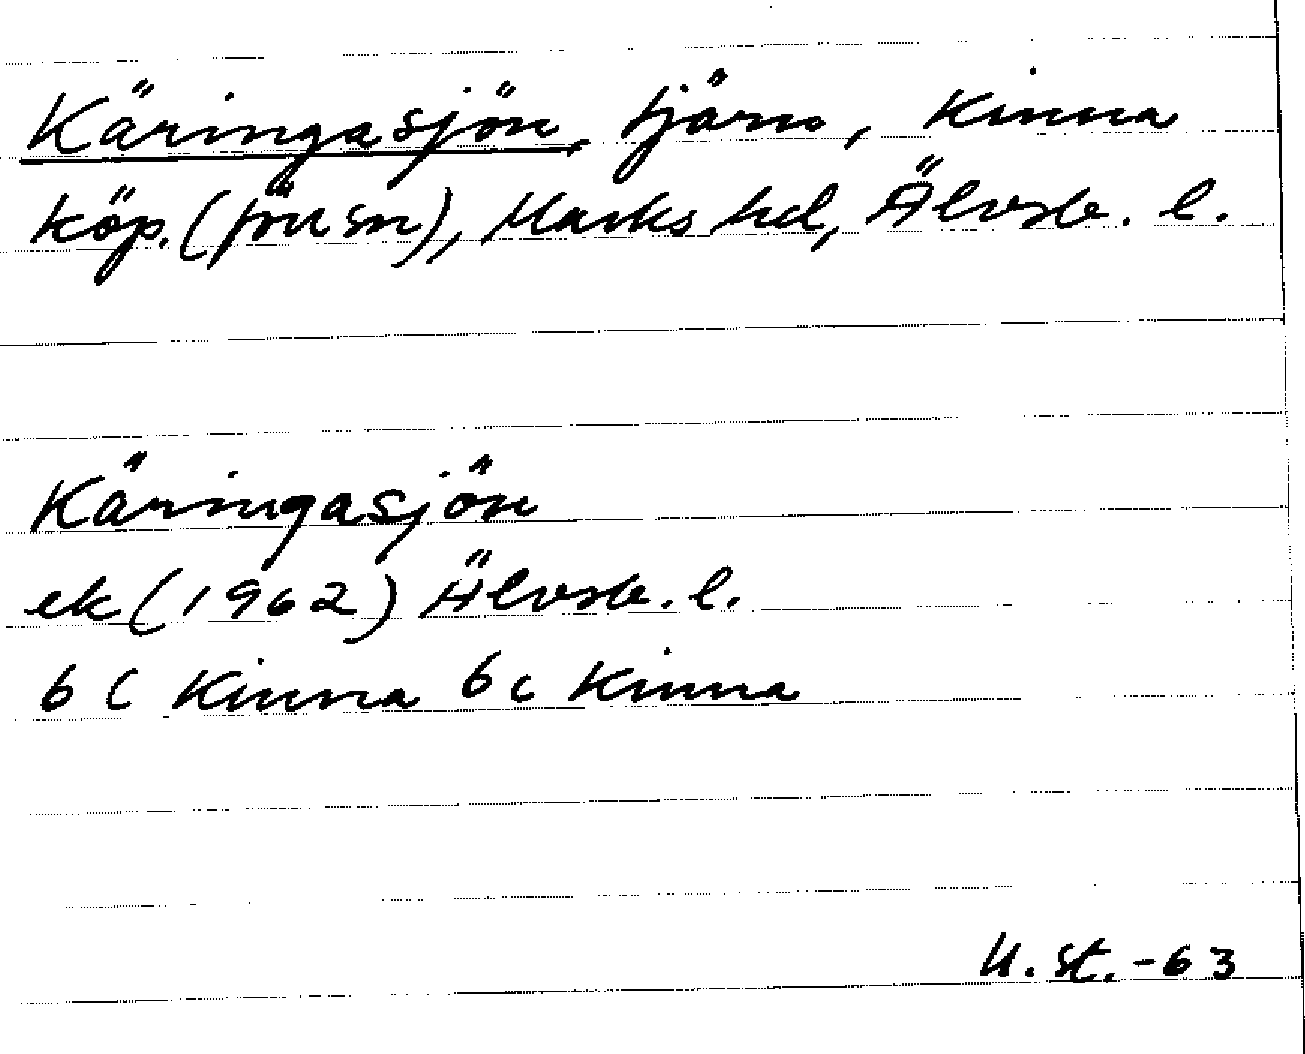 Käringasjön, tjärn, Kinna
köp. (förr sn), Marks hd, Älvsb. l.
Käringasjön
ek (1962) Älvsb. l.
6 C Kinna 6 c Kinna
U. St. -63